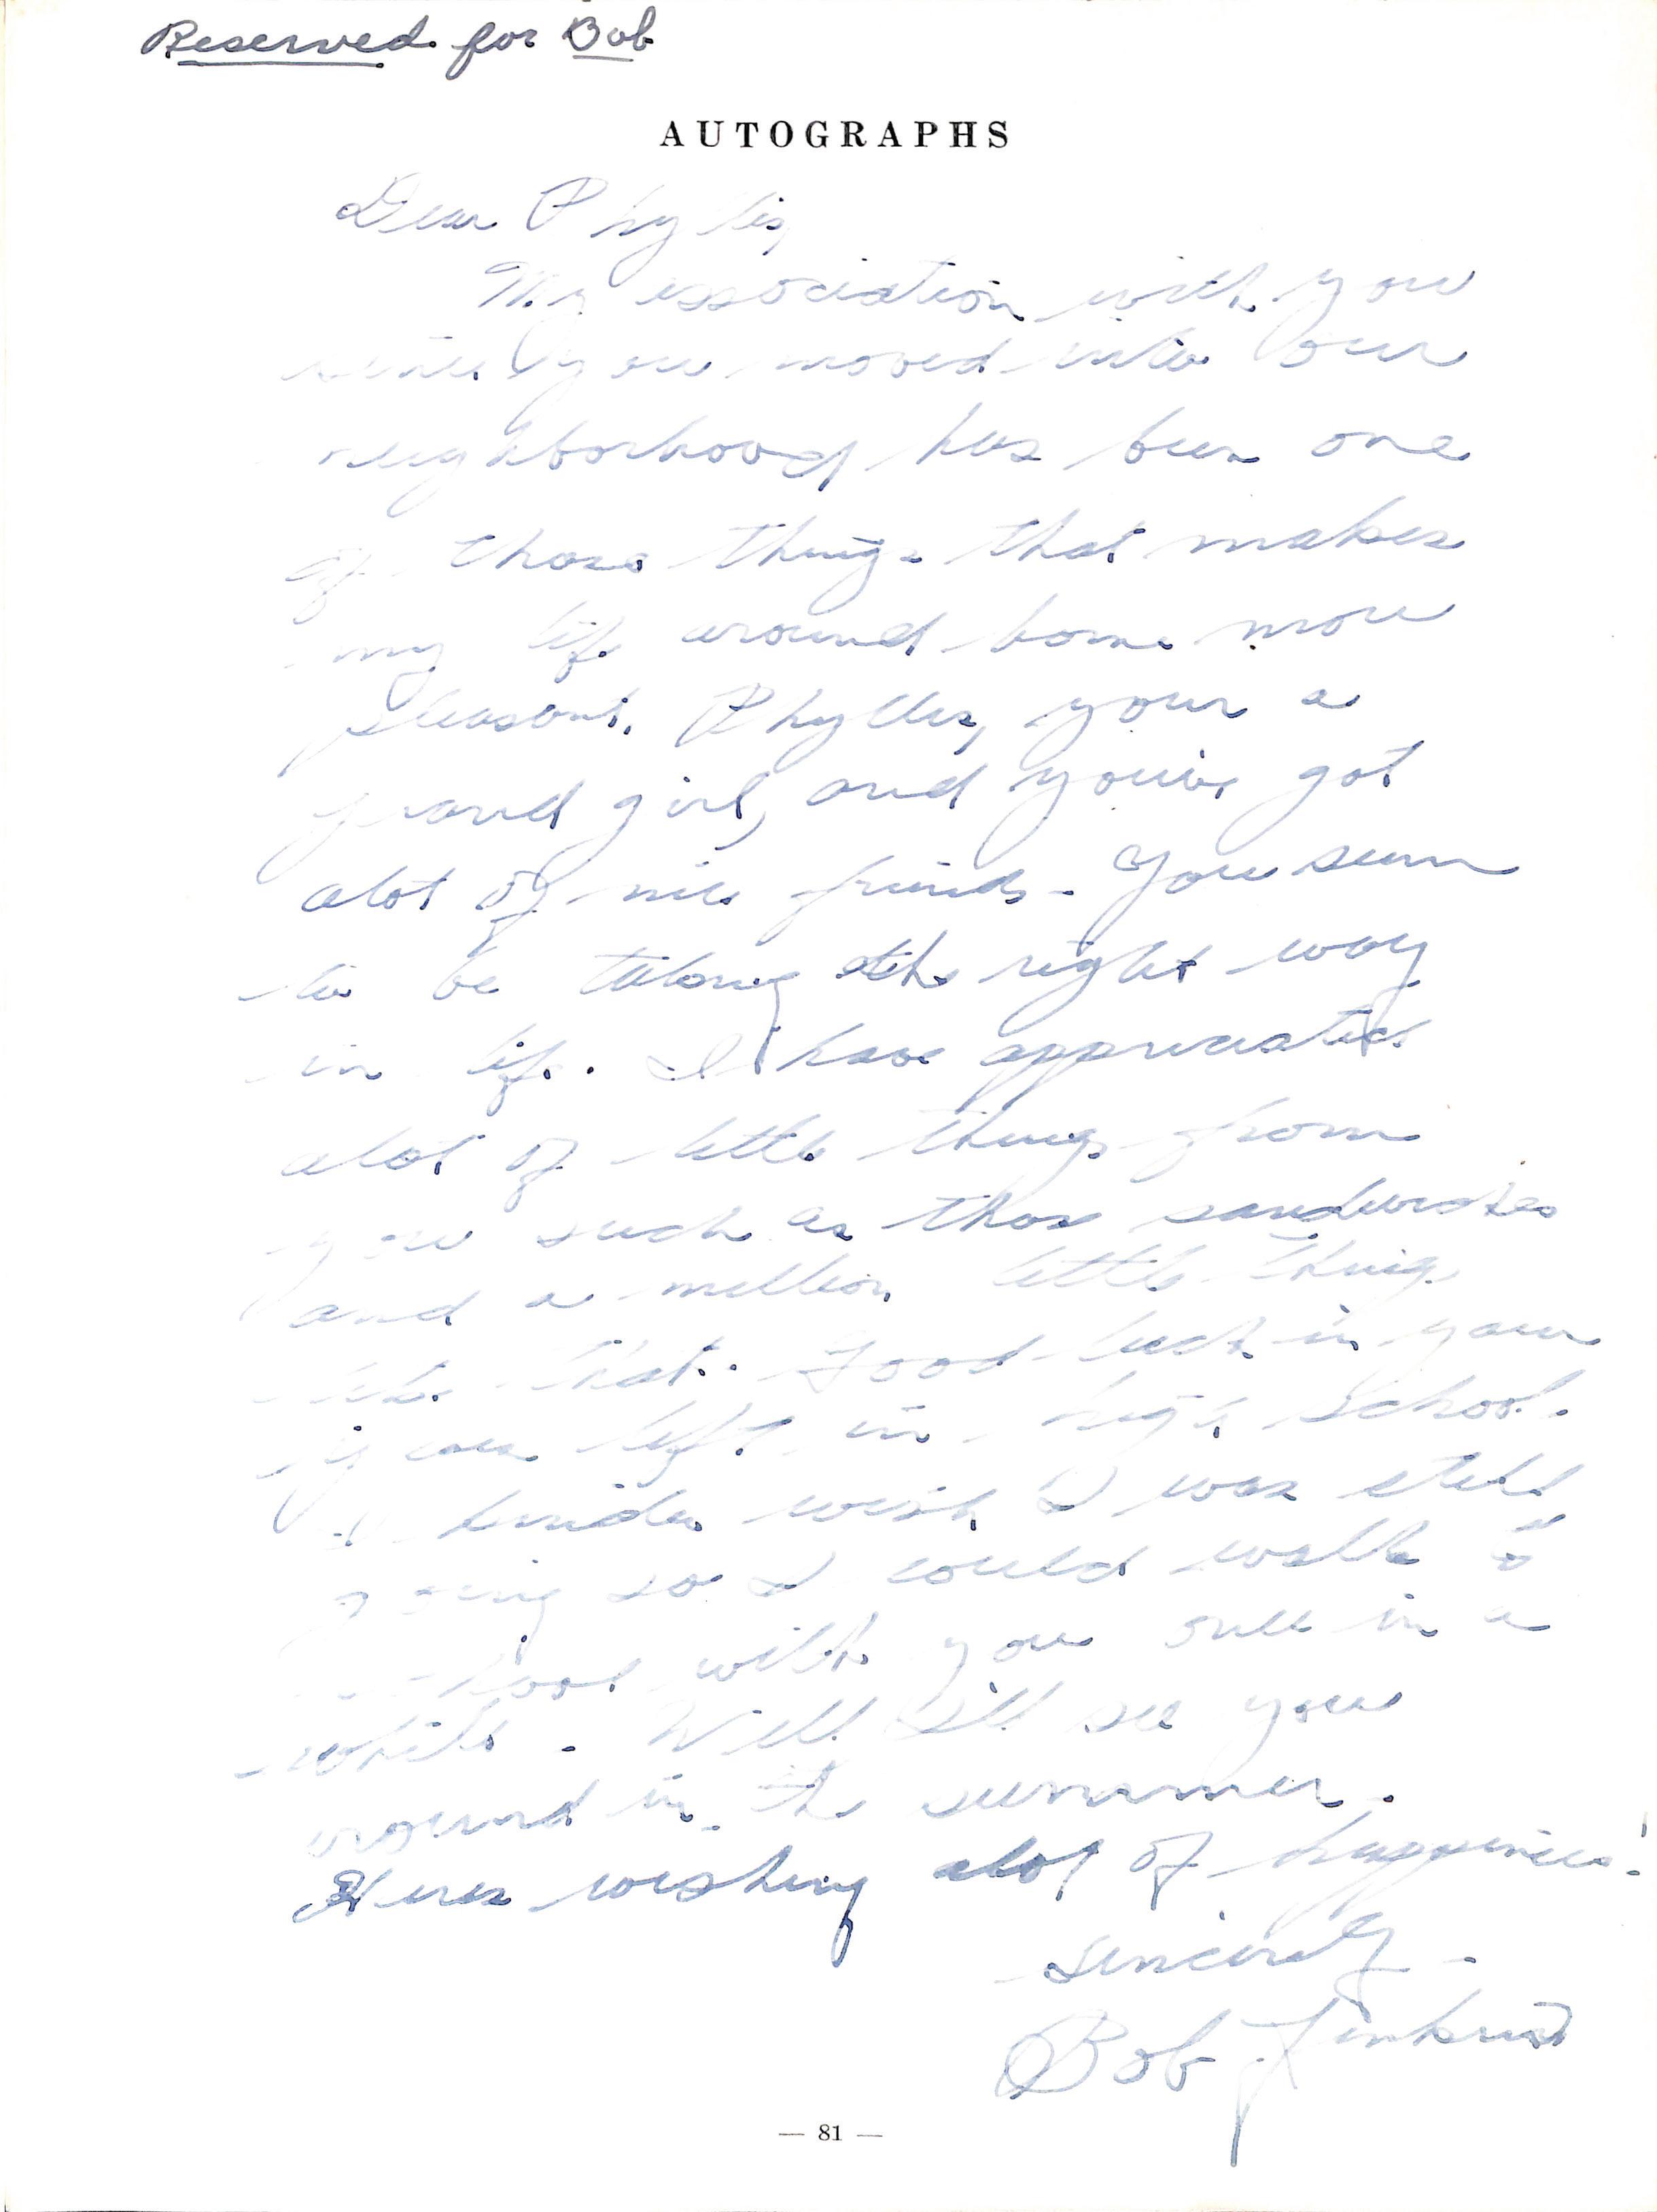 Reserved for Bob
AUTOGRAPHS
Dear Phyllis,
My association with you
since you moved into our
neighborhood has been one
of those things that makes
my life around home more
pleasant. Phyllis, your a
grand girl, and you've got
alot of nice friends - You seem
to be taking the right way
in life. I have appreciated
alot of little things from
you such as those sandwiches
and a million little things
like that. Good luck in your
year left in high school.
I kinda wish I was still
going so I could walk to
school with you once in a
while. Well I'll see you
around in the summer.
Heres wishing alot of happiness!
Sincerely -
Bob
— 81 —